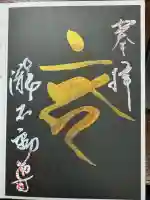 奉拝
亥
瀧不動尊